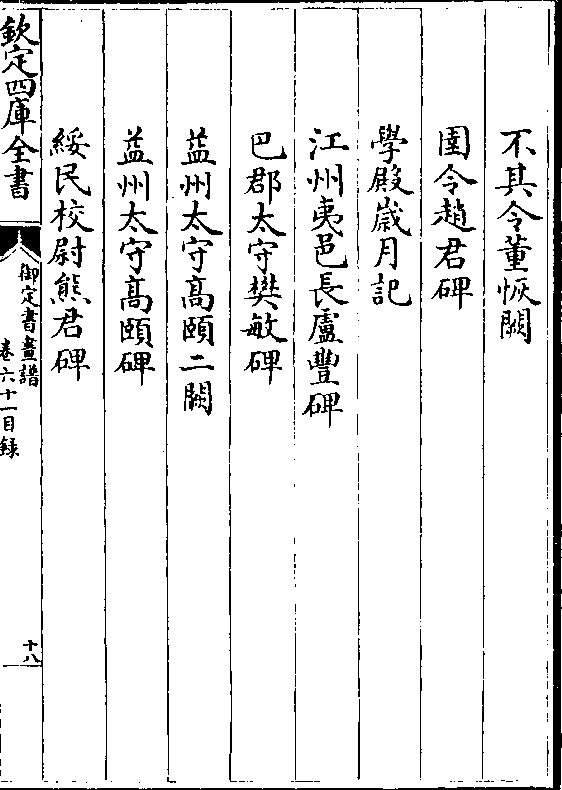 不其令董恢闕
圉令趙君碑
學殿歲月記
江州夷邑長盧豐碑
巴郡太守樊敏碑
益州太守高頤二闕
益州太守高頤碑
綏民校尉熊君碑
欽定四庫全書
御定書畫譜
卷六十一目録
十八